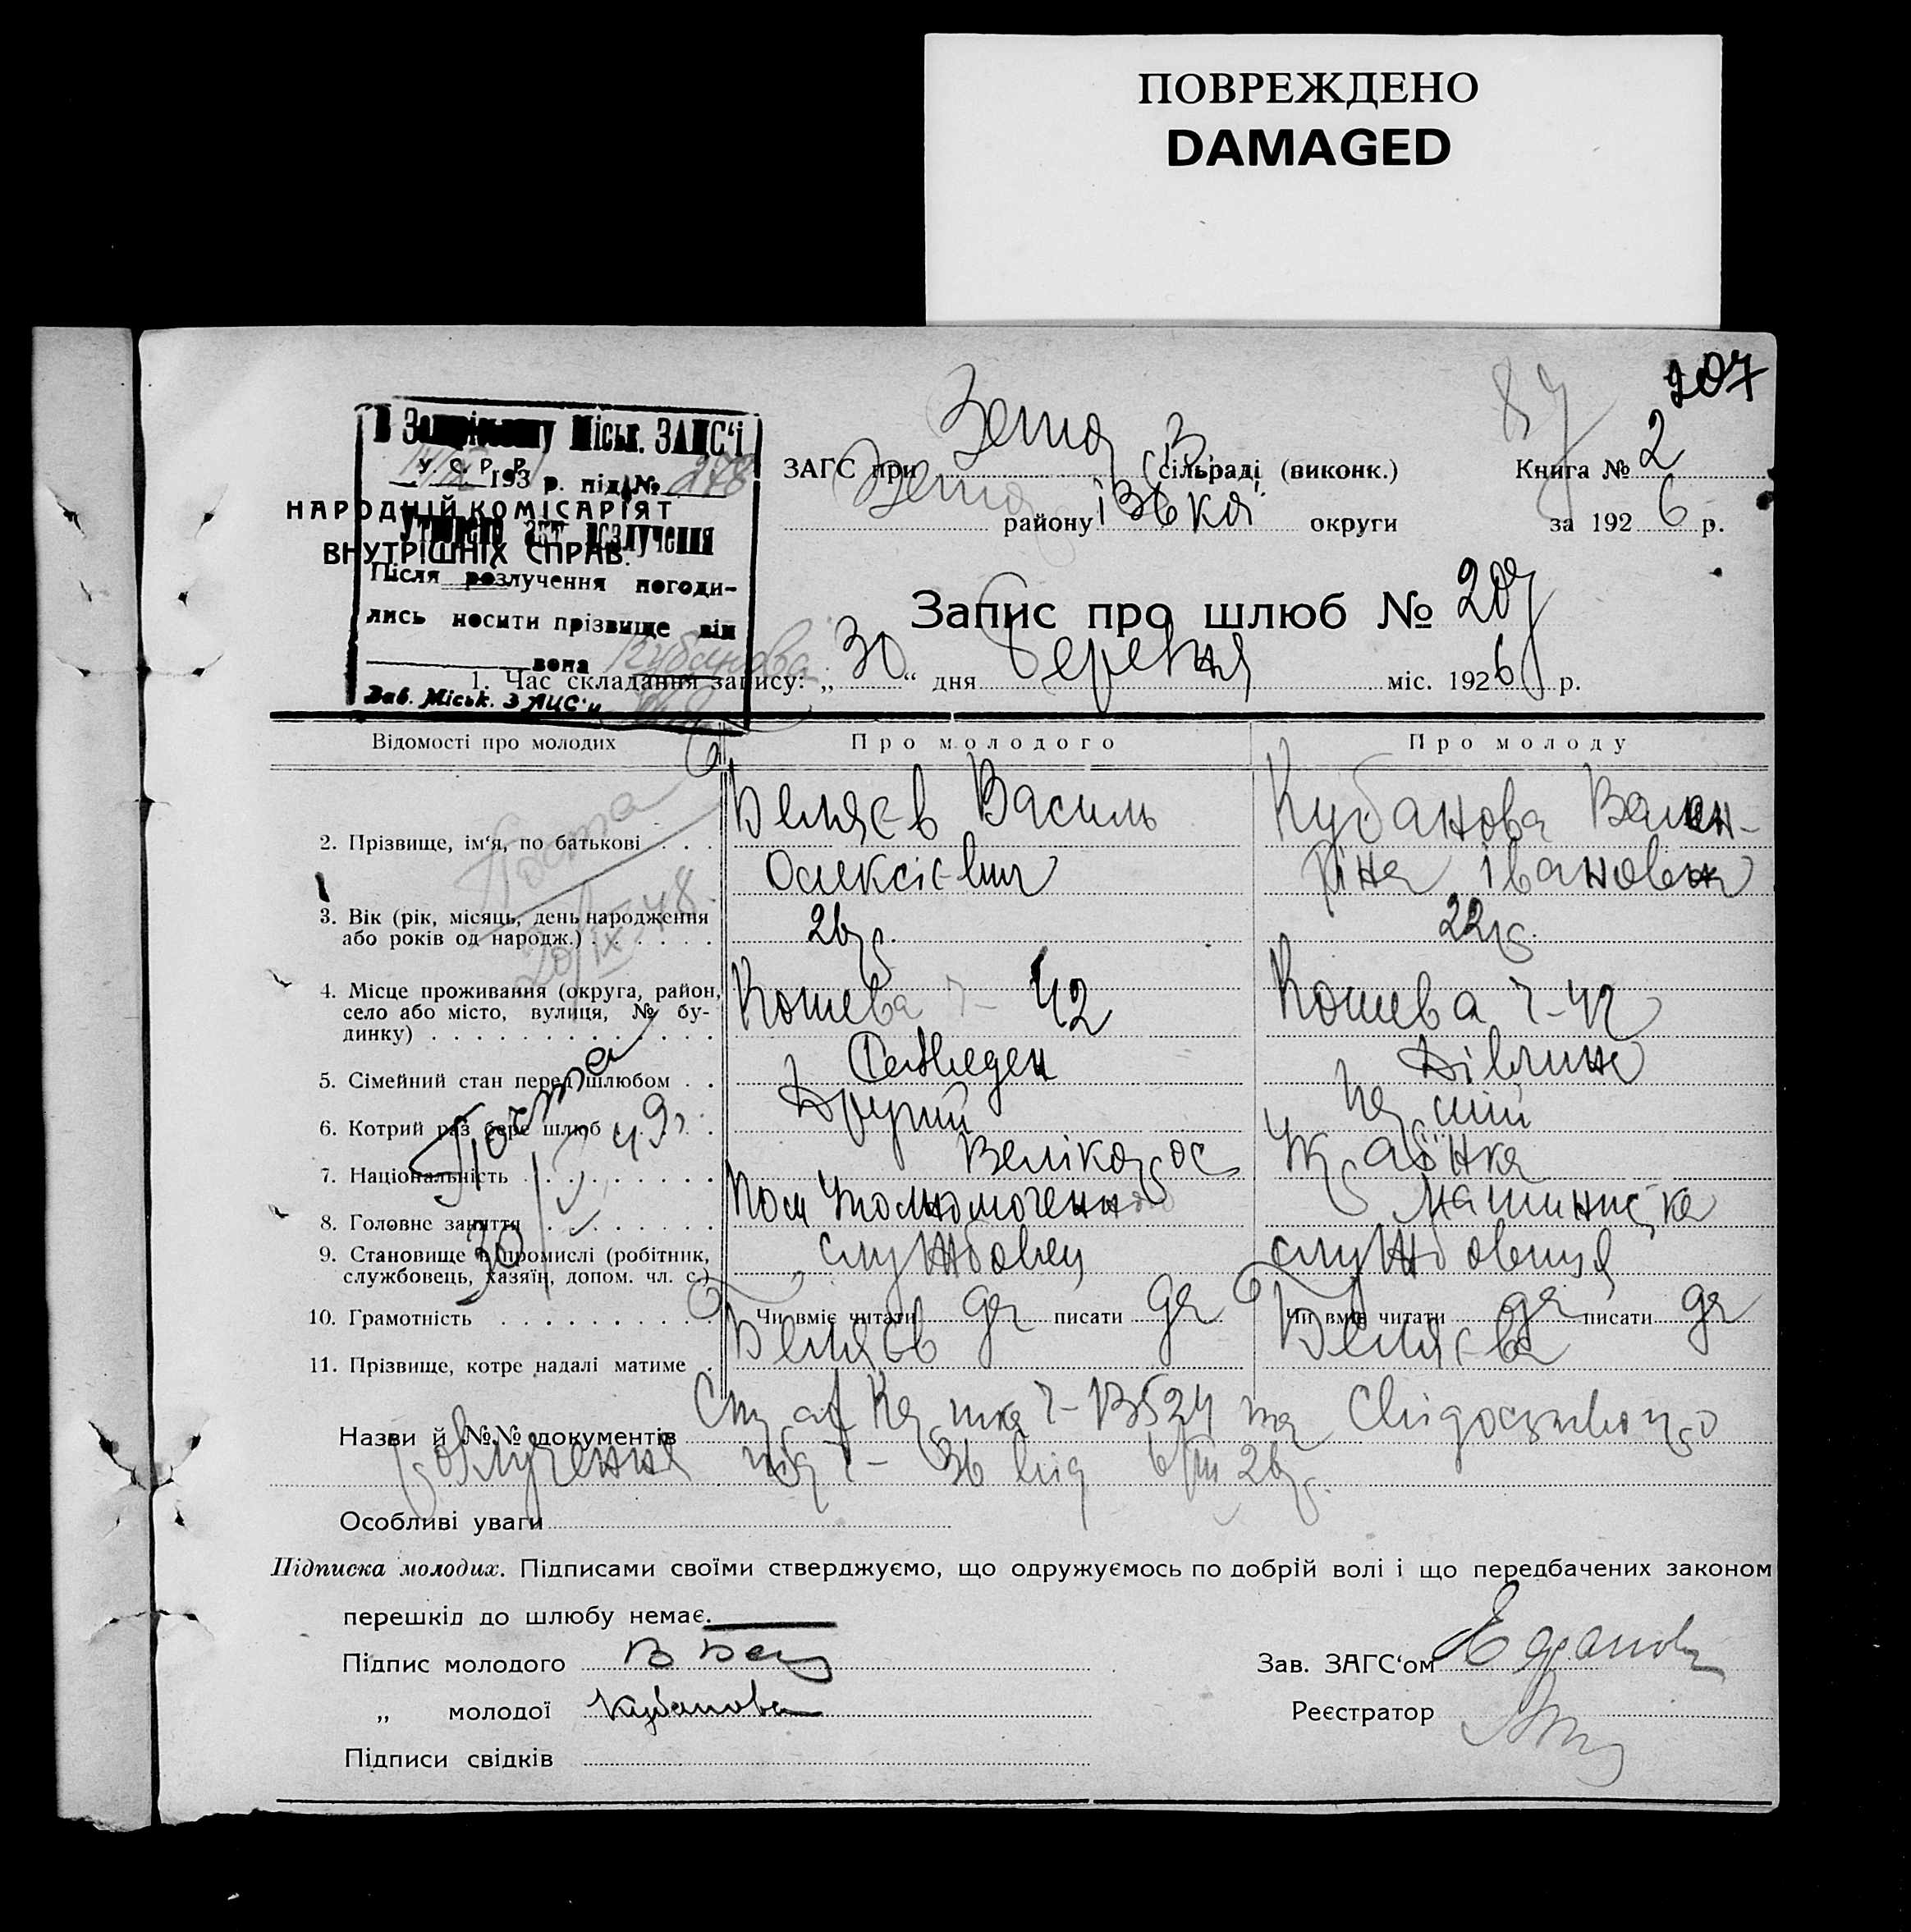 ПОВРЕЖДЕНО
DAMAGED
207
87
В Запорізькому Міськ. ЗАЦС'і
У. С. Р. Р.
193 р. під № 278
НАРОДНІЙ КОМІСАРІЯТ
Утворено акт розлучення
ВНУТРІШНІХ СПРАВ.
Після розлучення погоди-
лись носити прізвище він
вона Кубанова
Зав. Міськ. ЗАЦС'у
ЗАГС при (сільраді (виконк.) Книга № 2
району округи за 1926 р.
Запис про шлюб № 207
1. Час складання запису: „30“ дня березня міс. 1926 р.
Відомості про молодих Про молодого Про молоду
2. Прізвище, ім'я, по батькові . . . Беляєв Василь Олексієвич Кубанова Вален-тіна Івановна
3. Вік (рік, місяць, день народження або років од народж.) . . . . . . 26 р. 22 р.
4. Місце проживання (округа, район, село або місто, вулиця, № бу-динку) . . . . . . . . . . . . Кошева ч-42 Кошева ч-42
5. Сімейний стан перед шлюбом . . Дівчина
6. Котрий раз бере шлюб . . . Другий Перший
7. Національність . . . . . . . . . Велікорос Українка
8. Головне заняття . . . . . . . . Пом Уполномоченого Машиністка
9. Становище в промислі (робітник, службовець, хазяїн, допом. чл. с.) службовец службовиця
10. Грамотність . . . . . . . . . . Чи вміє читати да писати да Чи вміє читати да писати да
11. Прізвище, котре надалі матиме . Беляєв Беляєва
Почта
20/IX 48.
Почта
30/V 49 р.
Назви й №№ документів ч-8524 та Свідоцтво про
розлучення під ч- 36 від 6/III 26 р.
Особливі уваги
Підписка молодих. Підписами своїми стверджуємо, що одружуємось по добрій волі і що передбачених законом
перешкід до шлюбу немає.
Підпис молодого В Бел Зав. ЗАГС'ом
„ молодої Кубанова Реєстратор
Підписи свідків